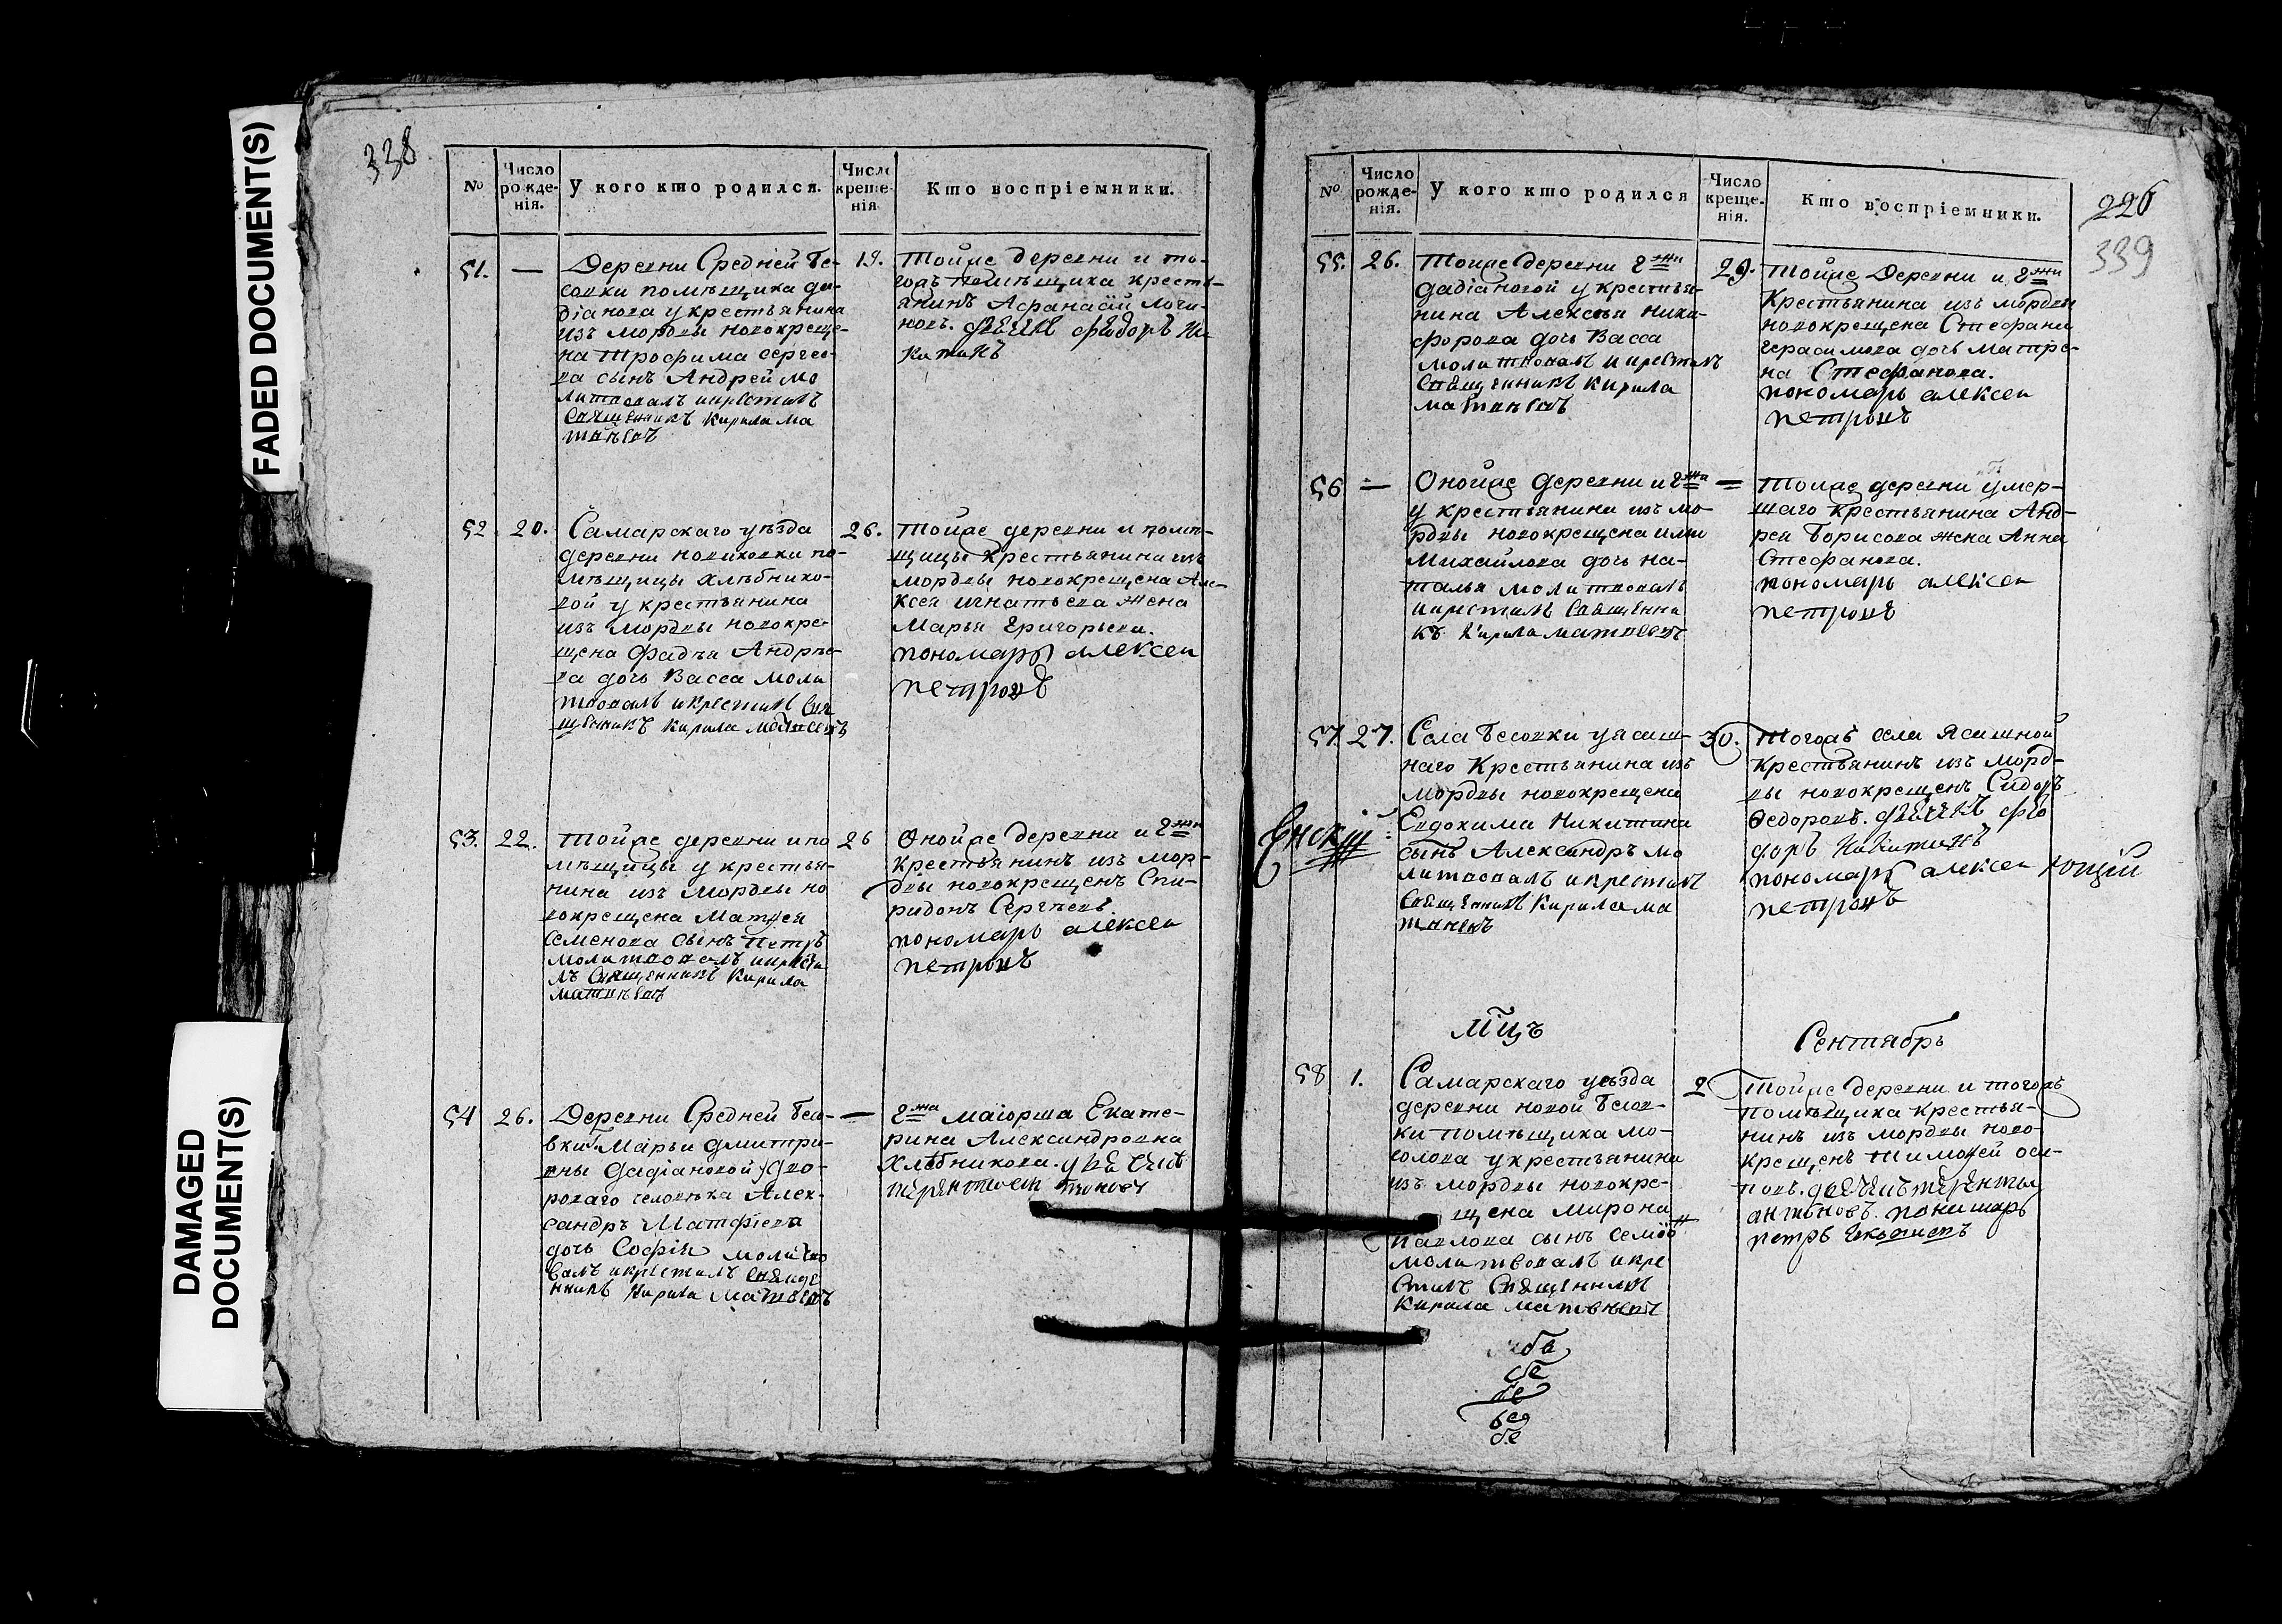 FADED DOCUMENT(S)
DAMAGED
DOCUMENT(S)
338
№
Число рожде-нія.
У кого кто родился.
Число креще-нія
Кто воспріемники.
51. —
Деревни Средней Бе-
совки помѣщика да-
діанова у крестьянина
изъ мордвы новокреще-
на Трофима сергее-
ва сынъ Андрей мо
литвовалъ икрестилъ
священникъ кирила ма
твѣевъ
19.
Тойже деревни и то-
гожъ помѣщика кресть-
янинъ Афанасій логи-
новъ. федоръ Ни
китинъ
52. 20.
Самарскаго уѣзда
деревни новиковки по-
мѣщицы хлѣбнико-
вой у крестьянина
изъ мордвы новокре-
щена Фадѣя Андрѣе-
ва дочь Васса моли
твовалъ икрестилъ свя
щенникъ кирила матвеевъ
26.
Тойже деревни и помѣ-
щицы крестьянина изъ
мордвы новокрещена Але-
ксея игнатьева жена
Марья Григорьева.
пономарь алексеи
петровъ
53. 22.
Тойже деревни ипо
мѣщицы у крестья-
нина изъ мордвы но
вокрещена Матвея
семенова сынъ Петръ
молитвовалъ икрести
лъ священникъ кирила
матвѣевъ
26
Онойже деревни и Гжи
крестьянинъ изъ мор-
двы новокрещенъ Спи-
ридонъ Сергѣевъ.
пономарь алексеи
петровъ
54 26.
Деревни Средней Бесо-
вки Марьи дмитри-
вны дадіановой у дво-
роваго человѣка Алек-
сандръ Матфіева
дочь Софія молитво
валъ икрестилъ священ
никъ кирила матвеевъ
—
Гжа маіорша Екате-
рина Александровна
Хлѣбникова.
226
339
№
Число рожде-нія.
У кого кто родился
Число креще-нія.
Кто воспріемники.
55. 26.
Тойже деревни Гжи
дадіановой у крестья-
нина Алексѣя ники-
форова дочь Васса
молитвовалъ икрестилъ
священникъ кирила
матвѣевъ
29.
Тойже Деревни и Гжи
Крестьянина изъ мордвы
новокрещена Стефана
герасимова дочь матре-
на Стефанова.
пономарь алексеи
петровъ
56 —
Онойже деревни и Гжи
у крестьянина изъ мо-
рдвы новокрещена ильи
Михайлова дочь на-
талья молитвовалъ
икрестилъ священни
къ кирила матвеевъ
—
Тойже деревни умер-
шаго крестьянина Анд-
рея Борисова жена Анна
Стефанова.
пономарь алексеи
петровъ
57. 27.
Села Бесовки у ясаш-
наго Крестьянина изъ
мордвы новокрещена
Евдокима Никитина
сынъ Александръ мо
литвовалъ икрестилъ
священникъ кирила ма
твѣевъ
30.
Тогожъ села Ясашной
крестьянинъ изъ Морд-
вы новокрещенъ Сидоръ
Ѳедоровъ. фе
доръ Никитинъ
пономарь алексеи
петровъ
Мцъ
Сентябрь
58 1.
Самарскаго уѣзда
деревни новой Бесов-
ки помѣщика мо-
солова у крестьянина
изъ мордвы новокре-
щена мирона
павлова сынъ семіонъ
молитвовалъ икре
стилъ Священникъ
кирила матвѣевъ
2
Тойже деревни и тогожъ
помѣщика крестья-
нинъ изъ мордвы ново-
крещенъ тимофей оси-
повъ. терентеи
антоновъ. пономарь
петръ